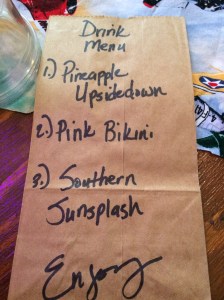 Drink
Menu
1.) Pineapple
Upsidedown
2.) Pink Bikini
3.) Southern
Sunsplash
Enjoy